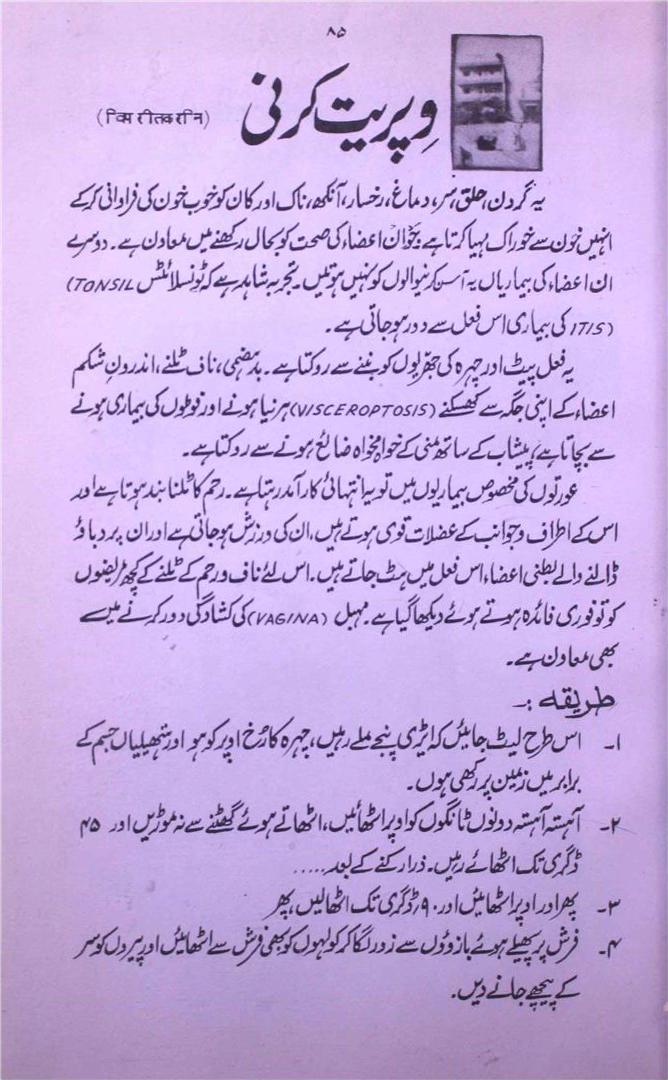 ۸۵
وِپریت کرنی
(विप्र रीतकरनि)
یہ گردن، حلق، سر، دماغ، رخسار، آنکھ، ناک اور کان کو خوب خون کی فراوانی کر کے
انہیں خون سے خوراک مہیا کرتا ہے جو ان اعضاء کی صحت کو بحال رکھنے میں معاون ہے۔ دوسرے
ان اعضاء کی بیماریاں یہ آسن کرنیوالوں کو نہیں ہوتیں۔ تجربہ شاہد ہے کہ ٹونسلائٹس (TONSIL
ITIS) کی بیماری اس فعل سے دور ہو جاتی ہے۔
یہ فعل پیٹ اور چہرہ کی جھریوں کو بننے سے روکتا ہے۔ بدہضمی، ناف ٹلنے، اندرونِ شکم
اعضاء کے اپنی جگہ سے کھسکنے (VISCEROPTOSIS) ہرنیا ہونے اور فوطوں کی بیماری ہونے
سے بچاتا ہے، پیشاب کے ساتھ منی کے خواہ مخواہ ضائع ہونے سے روکتا ہے۔
عورتوں کی مخصوص بیماریوں میں تو یہ انتہائی کارآمد رہتا ہے۔ رحم کا ٹلنا بند ہوتا ہے اور
اس کے اطراف و جوانب کے عضلات قوی ہوتے ہیں، ان کی ورزش ہو جاتی ہے اور ان پر دباؤ
ڈالنے والے بطنی اعضاء اس فعل میں ہٹ جاتے ہیں۔ اس لئے ناف ورحم کے ٹلنے کے کچھ مریضوں
کو تو فوری فائدہ ہوتے ہوئے دیکھا گیا ہے۔ مہبل (VAGINA) کی کشادگی دور کرنے میں
بھی معاون ہے۔
طریقہ :۔
۱۔ اس طرح لیٹ جائیں کہ ایڑی پنجے ملے رہیں، چہرہ کا رُخ اوپر کو ہو اور ہتھیلیاں جسم کے
برابر میں زمین پر رکھی ہوں۔
۲۔ آہستہ آہستہ دونوں ٹانگوں کو اوپر اٹھائیں، اٹھاتے ہوئے گھٹنے سے نہ موڑیں اور ۴۵
ڈگری تک اٹھائے رہیں۔ ذرا رکنے کے بعد.....
۳۔ پھر اور اوپر اٹھائیں اور ۹۰ ڈگری تک اٹھالیں، پھر
۴۔ فرش پر پھیلے ہوئے بازوؤں سے زور لگا کر کولہوں کو بھی فرش سے اٹھائیں اور پیروں کو سر
کے پیچھے جانے دیں۔